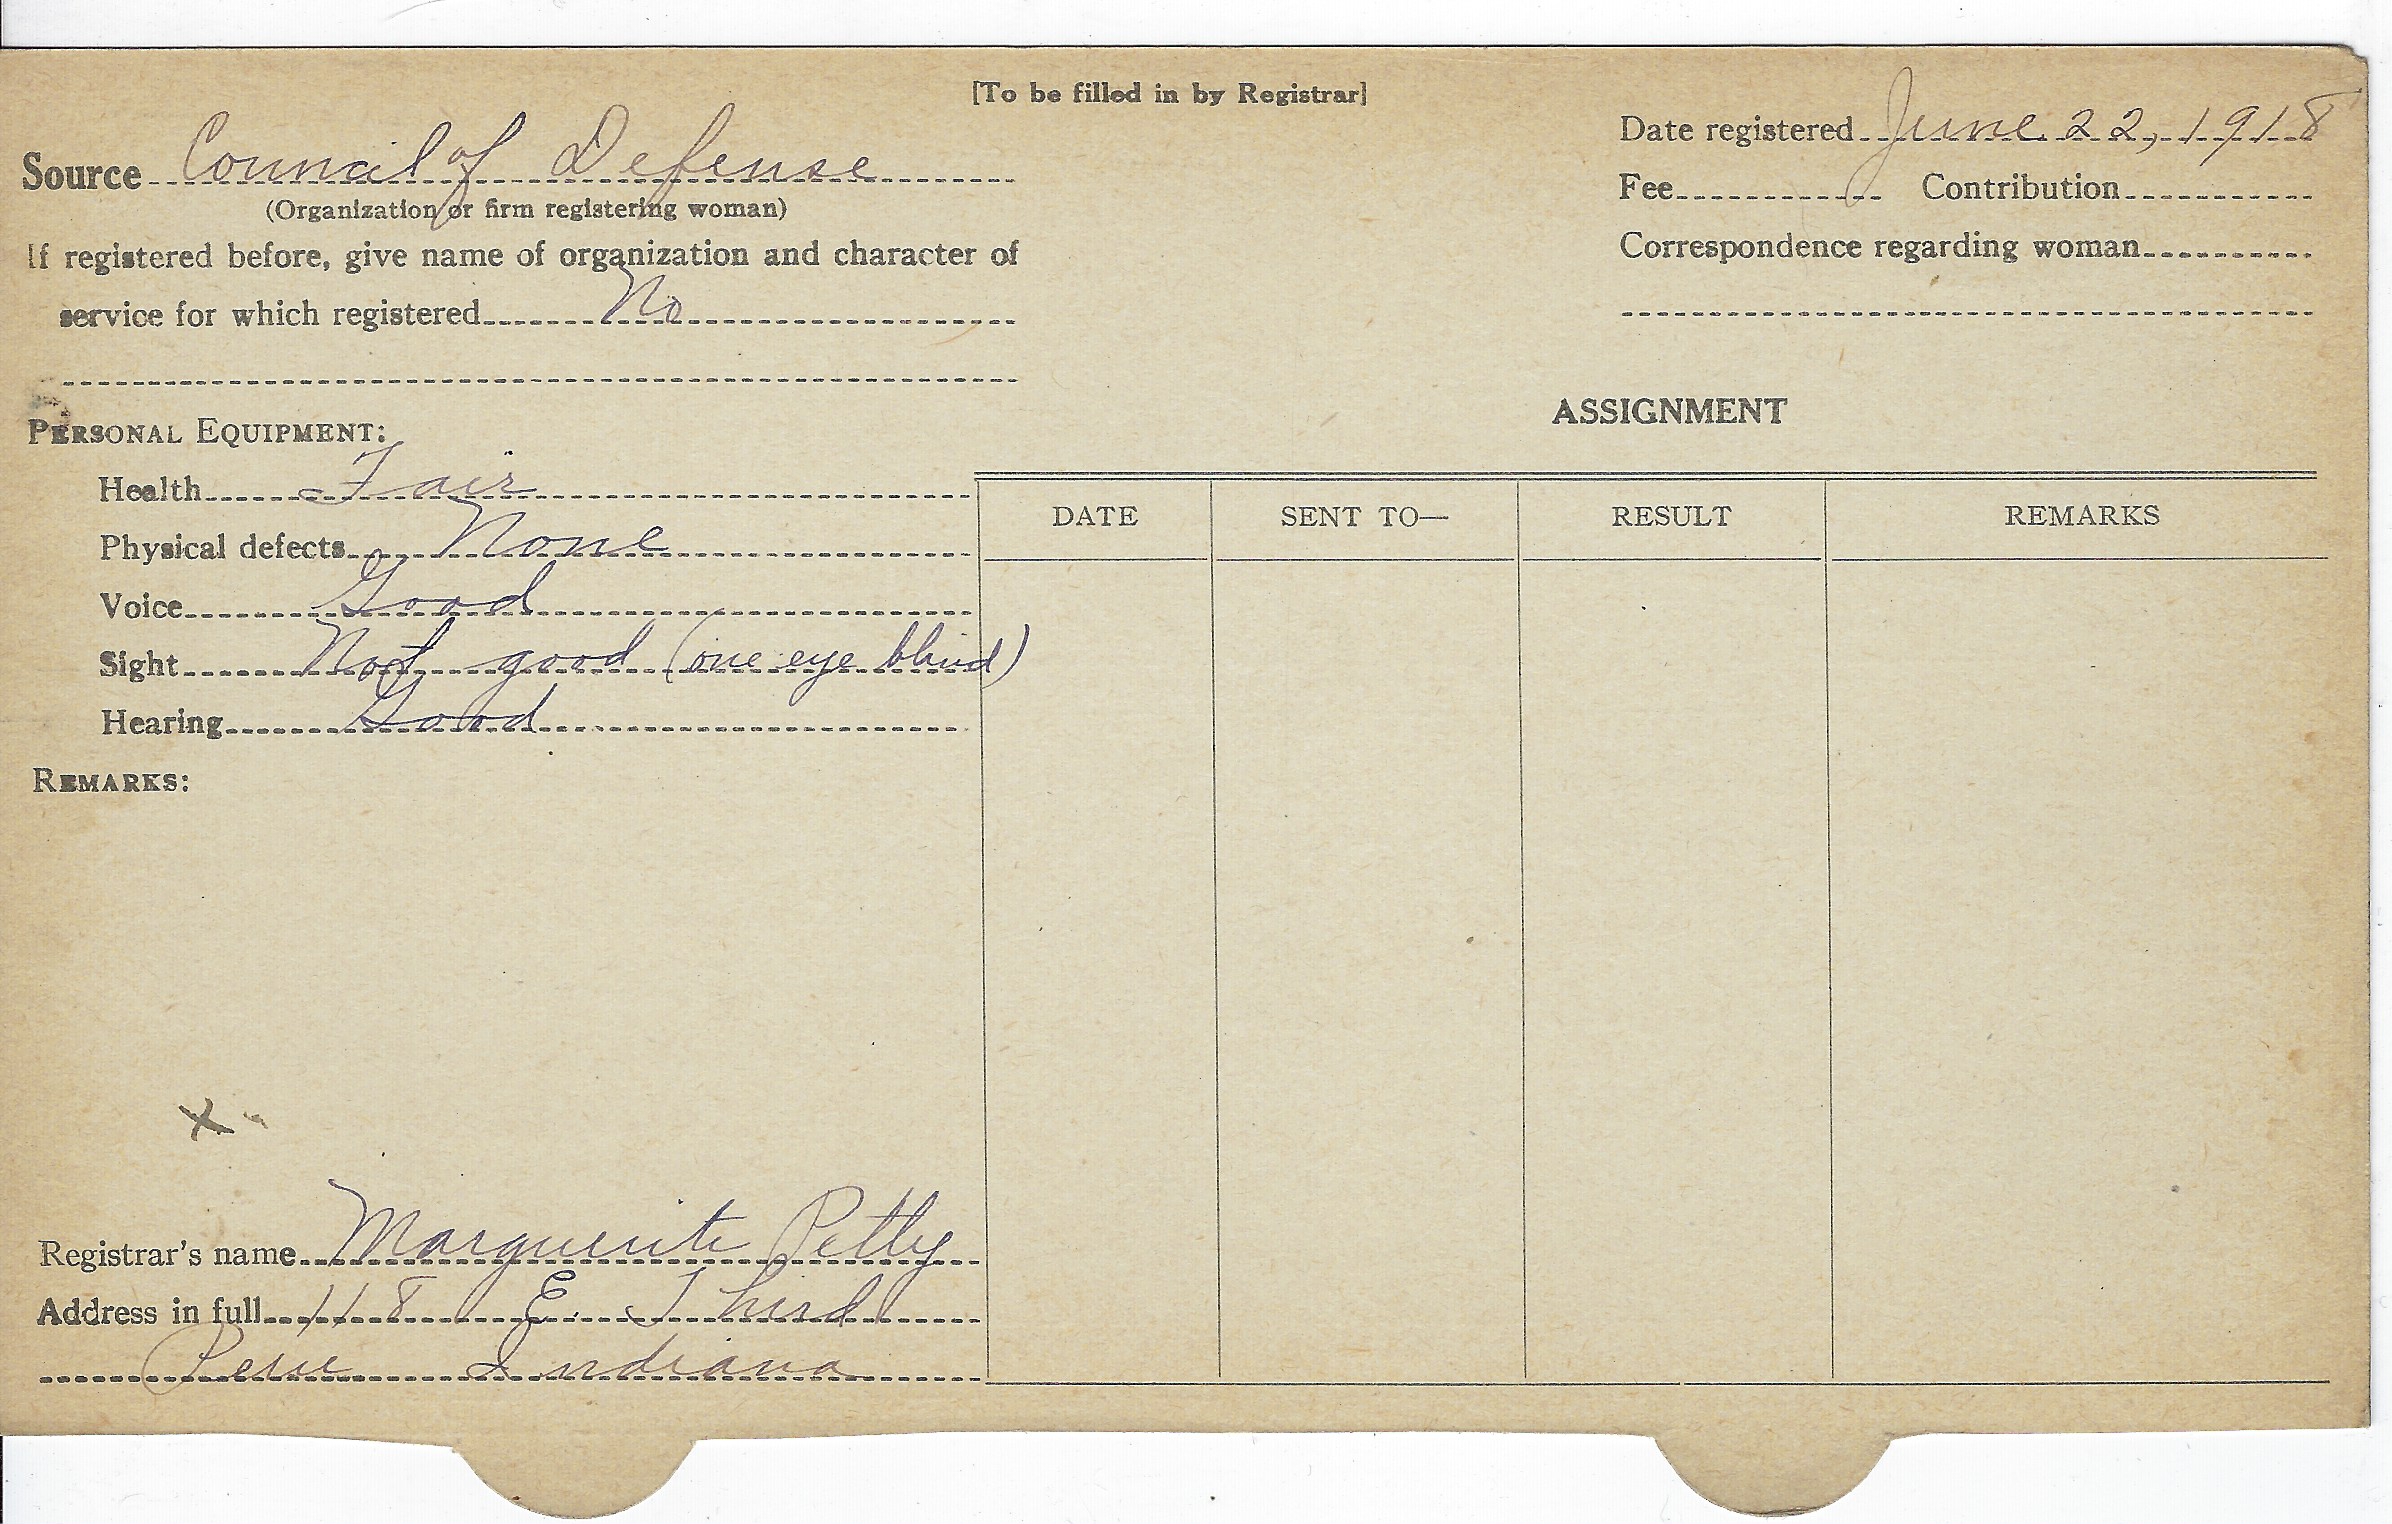 [To be filled in by Registrar]
Source Council of Defense
(Organization or firm registering woman)
If registered before, give name of organization and character of
service for which registered No
Date registered June 22, 1918
Fee Contribution
Correspondence regarding woman
PERSONAL EQUIPMENT:
Health Fair
Physical defects None
Voice Good
Sight Not good (one eye blind)
Hearing Good
REMARKS:
ASSIGNMENT
DATE SENT TO— RESULT REMARKS
x
Registrar's name Marguerite Petty
Address in full 118 E. Third
Peru Indiana